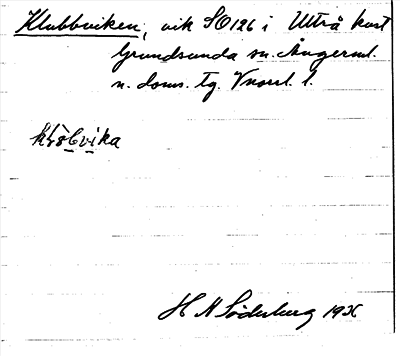 Klubbviken, vik SO126 i Utträ kust
Grundsunda sn. Ångerml.
n. doms. tg. Vnorrl. l.
klòbvika
H N Söderberg 1936